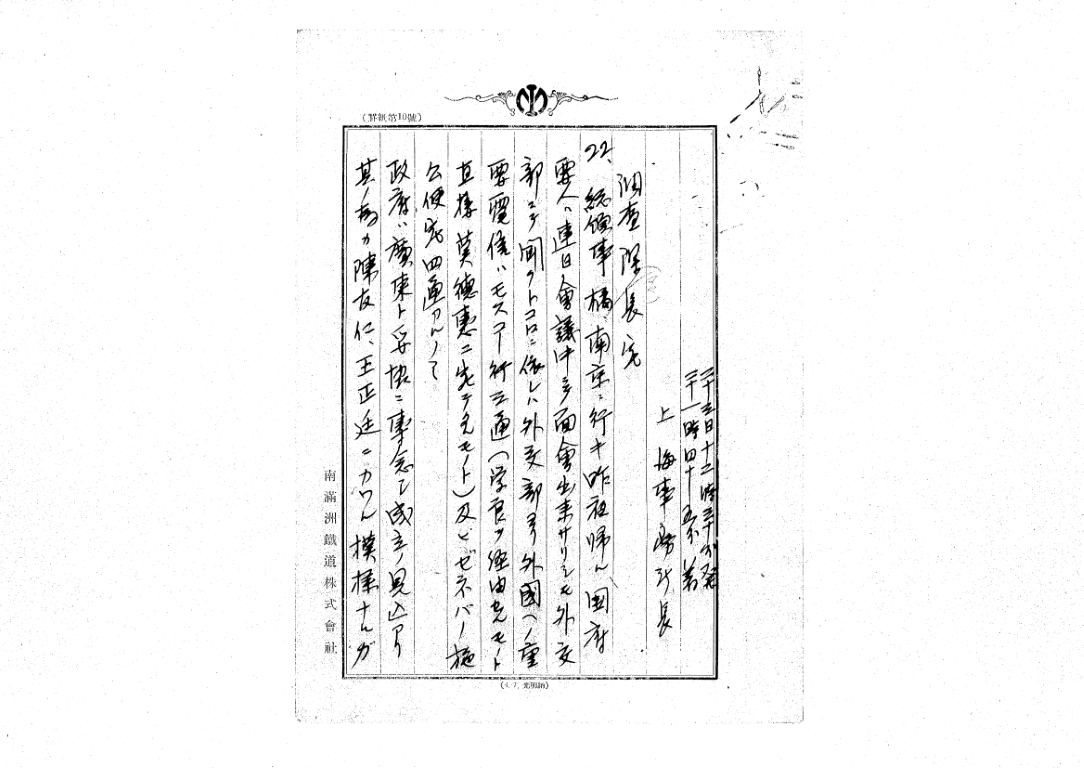 (罫紙第10號)
二十三日十二時三十分発
二十一時四十五分着
上海事務所長
調査課長宛
22、総領事橘、南京ニ行キ昨祖帰ル 国府
要人ハ連日会議中ニテ面會出来サリシモ外交
部ニテ聞クトコロニ依レハ外交部ヨリ外國ヘノ重
要電信ハモスコー行三通(学良ヲ経由セルモノト
直接莫德惠ニ宛テタルモノト)及ヒゼネバノ施
公使宛四通アルノミ
政府ハ廣東ト妥協ニ専念シ成立ノ見込アリ
其ノ為カ陳友仁、王正廷ニカワル模様ナルガ
南滿洲鐵道株式會社